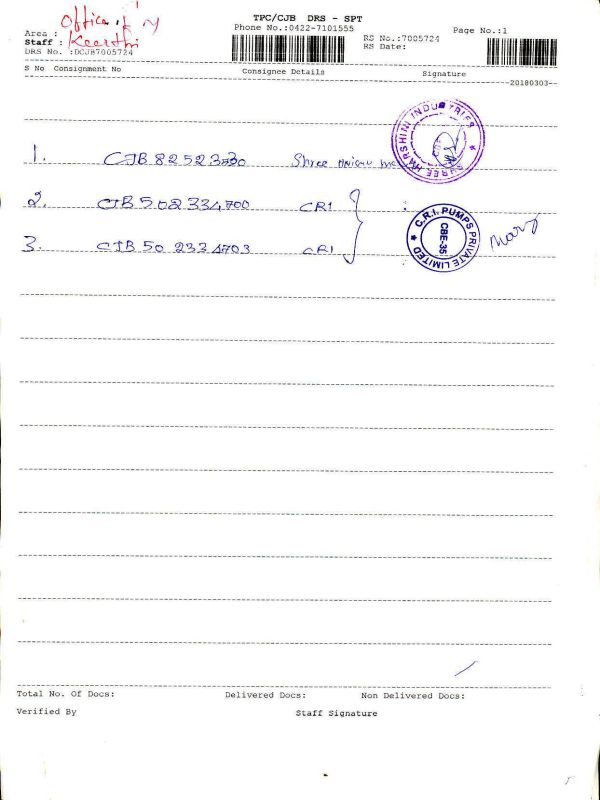 TPC/CJB DRS - SPT
Phone No.:0422-7101555
Page No.:1
Office
Area :
Staff : Keerthi
DRS No. :DCJB7005724
RS No.:7005724
RS Date:
S No Consignment No Consignee Details Signature
20180303
1. CJB 82523530 Shree
SHREE HARSHINI INDUSTRIES
2. CJB 502334700 CRI
3. CJB 50 2334703 CRI
C.R.I. PUMPS PRIVATE LIMITED
CBE-35
Total No. Of Docs: Delivered Docs: Non Delivered Docs:
Verified By Staff Signature